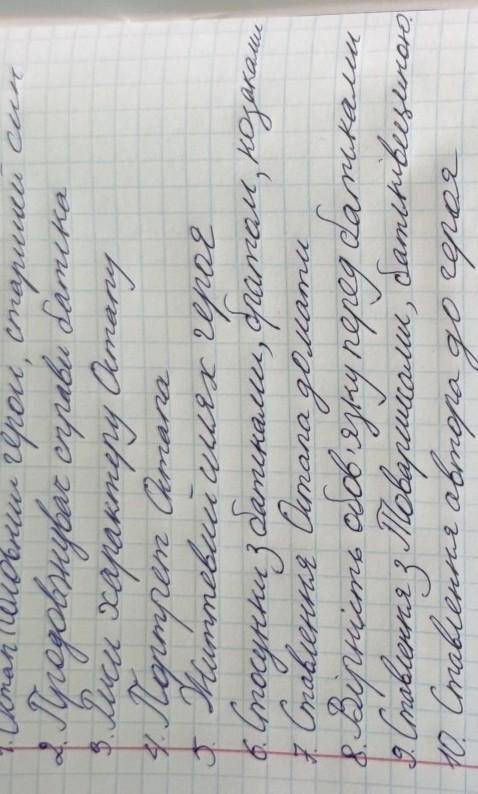 1. Остап головний герой, старший син
2. Продовжувач справи батька
3. Риси характеру Остапу
4. Портрет Остапа
5. Життєвий шлях героя
6. Стосунки з батьками, братом, козаками
7. Ставлення Остапа до мати
8. Вірність обов'язку перед батьками
9. Ставлення з Товаришами, батьківщиною.
10. Ставлення автора до героя